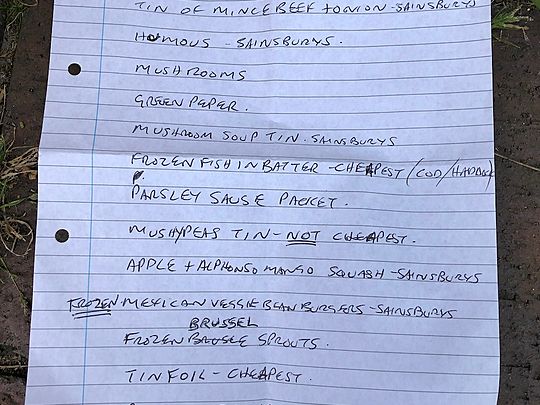 TIN OF MINCE BEEF + ONION - SAINSBURYS
HOUMOUS - SAINSBURYS.
MUSHROOMS
GREEN PEPER.
MUSHROOM SOUP TIN - SAINSBURYS
FROZEN FISH IN BATTER - CHEAPEST (COD/HADDOCK)
PARSLEY SAUSE PACKET.
MUSHYPEAS TIN - NOT CHEAPEST.
APPLE + ALPHONSO MANGO SQUASH - SAINSBURYS
FROZEN MEXICAN VEGGIE BEAN BURGERS - SAINSBURYS
BRUSSEL
FROZEN BRUSLE SPROUTS.
TIN FOIL - CHEAPEST.